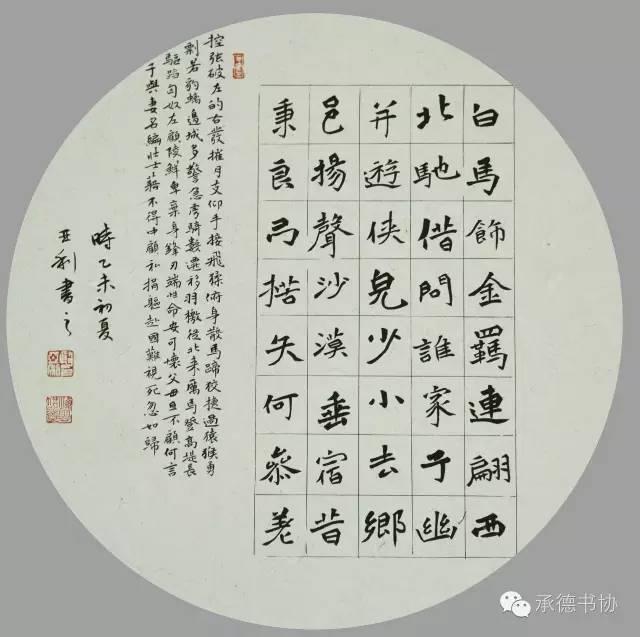 白馬飾金羈連翩西
北馳借問誰家子幽
并遊俠兒少小去鄉
邑揚聲沙漠垂宿昔
秉良弓楛矢何參差
控弦破左的右發摧月支仰手接飛猱俯身散馬蹄狡捷過猿猴勇
剽若豹螭邊城多警急虜騎數遷移羽檄從北來厲馬登高堤長
驅蹈匈奴左顧陵鮮卑棄身鋒刃端性命安可懷父母且不顧何言
子與妻名編壯士籍不得中顧私捐軀赴國難視死忽如歸
時乙未初夏
亞利書之
承德书协